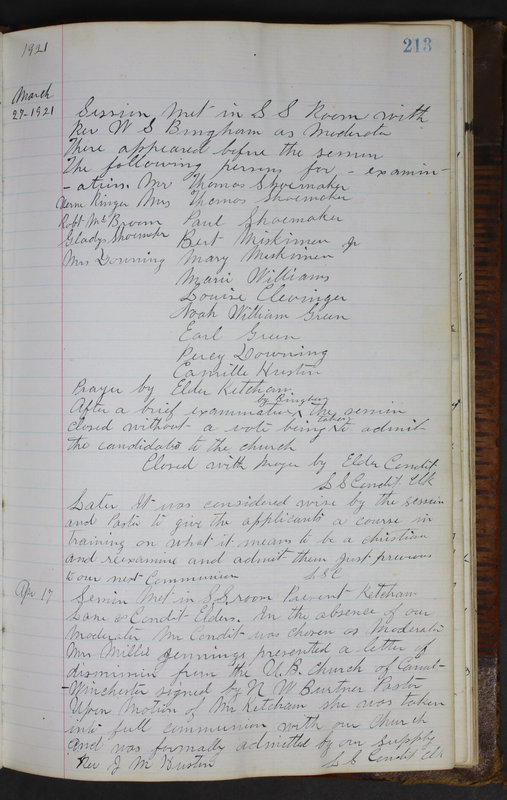 1921
213
March
27-1921
Session met in S S Room with
Rev W S Bingham as Moderator
There appeared before the session
The following persons for - examin-
-ation. Mr Thomas Shoemaker
Verne Ringer Mrs Thomas Shoemaker
Robt McBroom Paul Shoemaker
Gladys Shoemaker Bert Miskimen Jr
Mrs Downing Mary Miskimen
Marie Williams
Louise Clevinger
Noah William Green
Earl Green
Percy Downing
Camille Huston
Prayer by Elder Ketcham
by Bingham
After a brief examination ^ the session
closed without a vote being taken to admit
the candidates to the church
Closed with prayer by Elder Condit.
S S Condit Clk
Later It was considered wise by the session
and Pastor to give the applicants a course in
training on what it means to be a christian
and reexamine and admit them just previous
to our next Communion S S C
Apr 17
Session met in S S room Present Ketcham
Lane & Condit Elders. In the absence of our
Moderator Mr Condit was chosen as Moderator
Mrs Millie Jennings presented a letter of
dismission from the U.B. Church of Canal-
-Winchester signed by N W Burtner Pastor
Upon Motion of Mr Ketcham she was taken
into full communion with our Church
and was formally admitted by our supply
Rev J M
S S Condit Clk